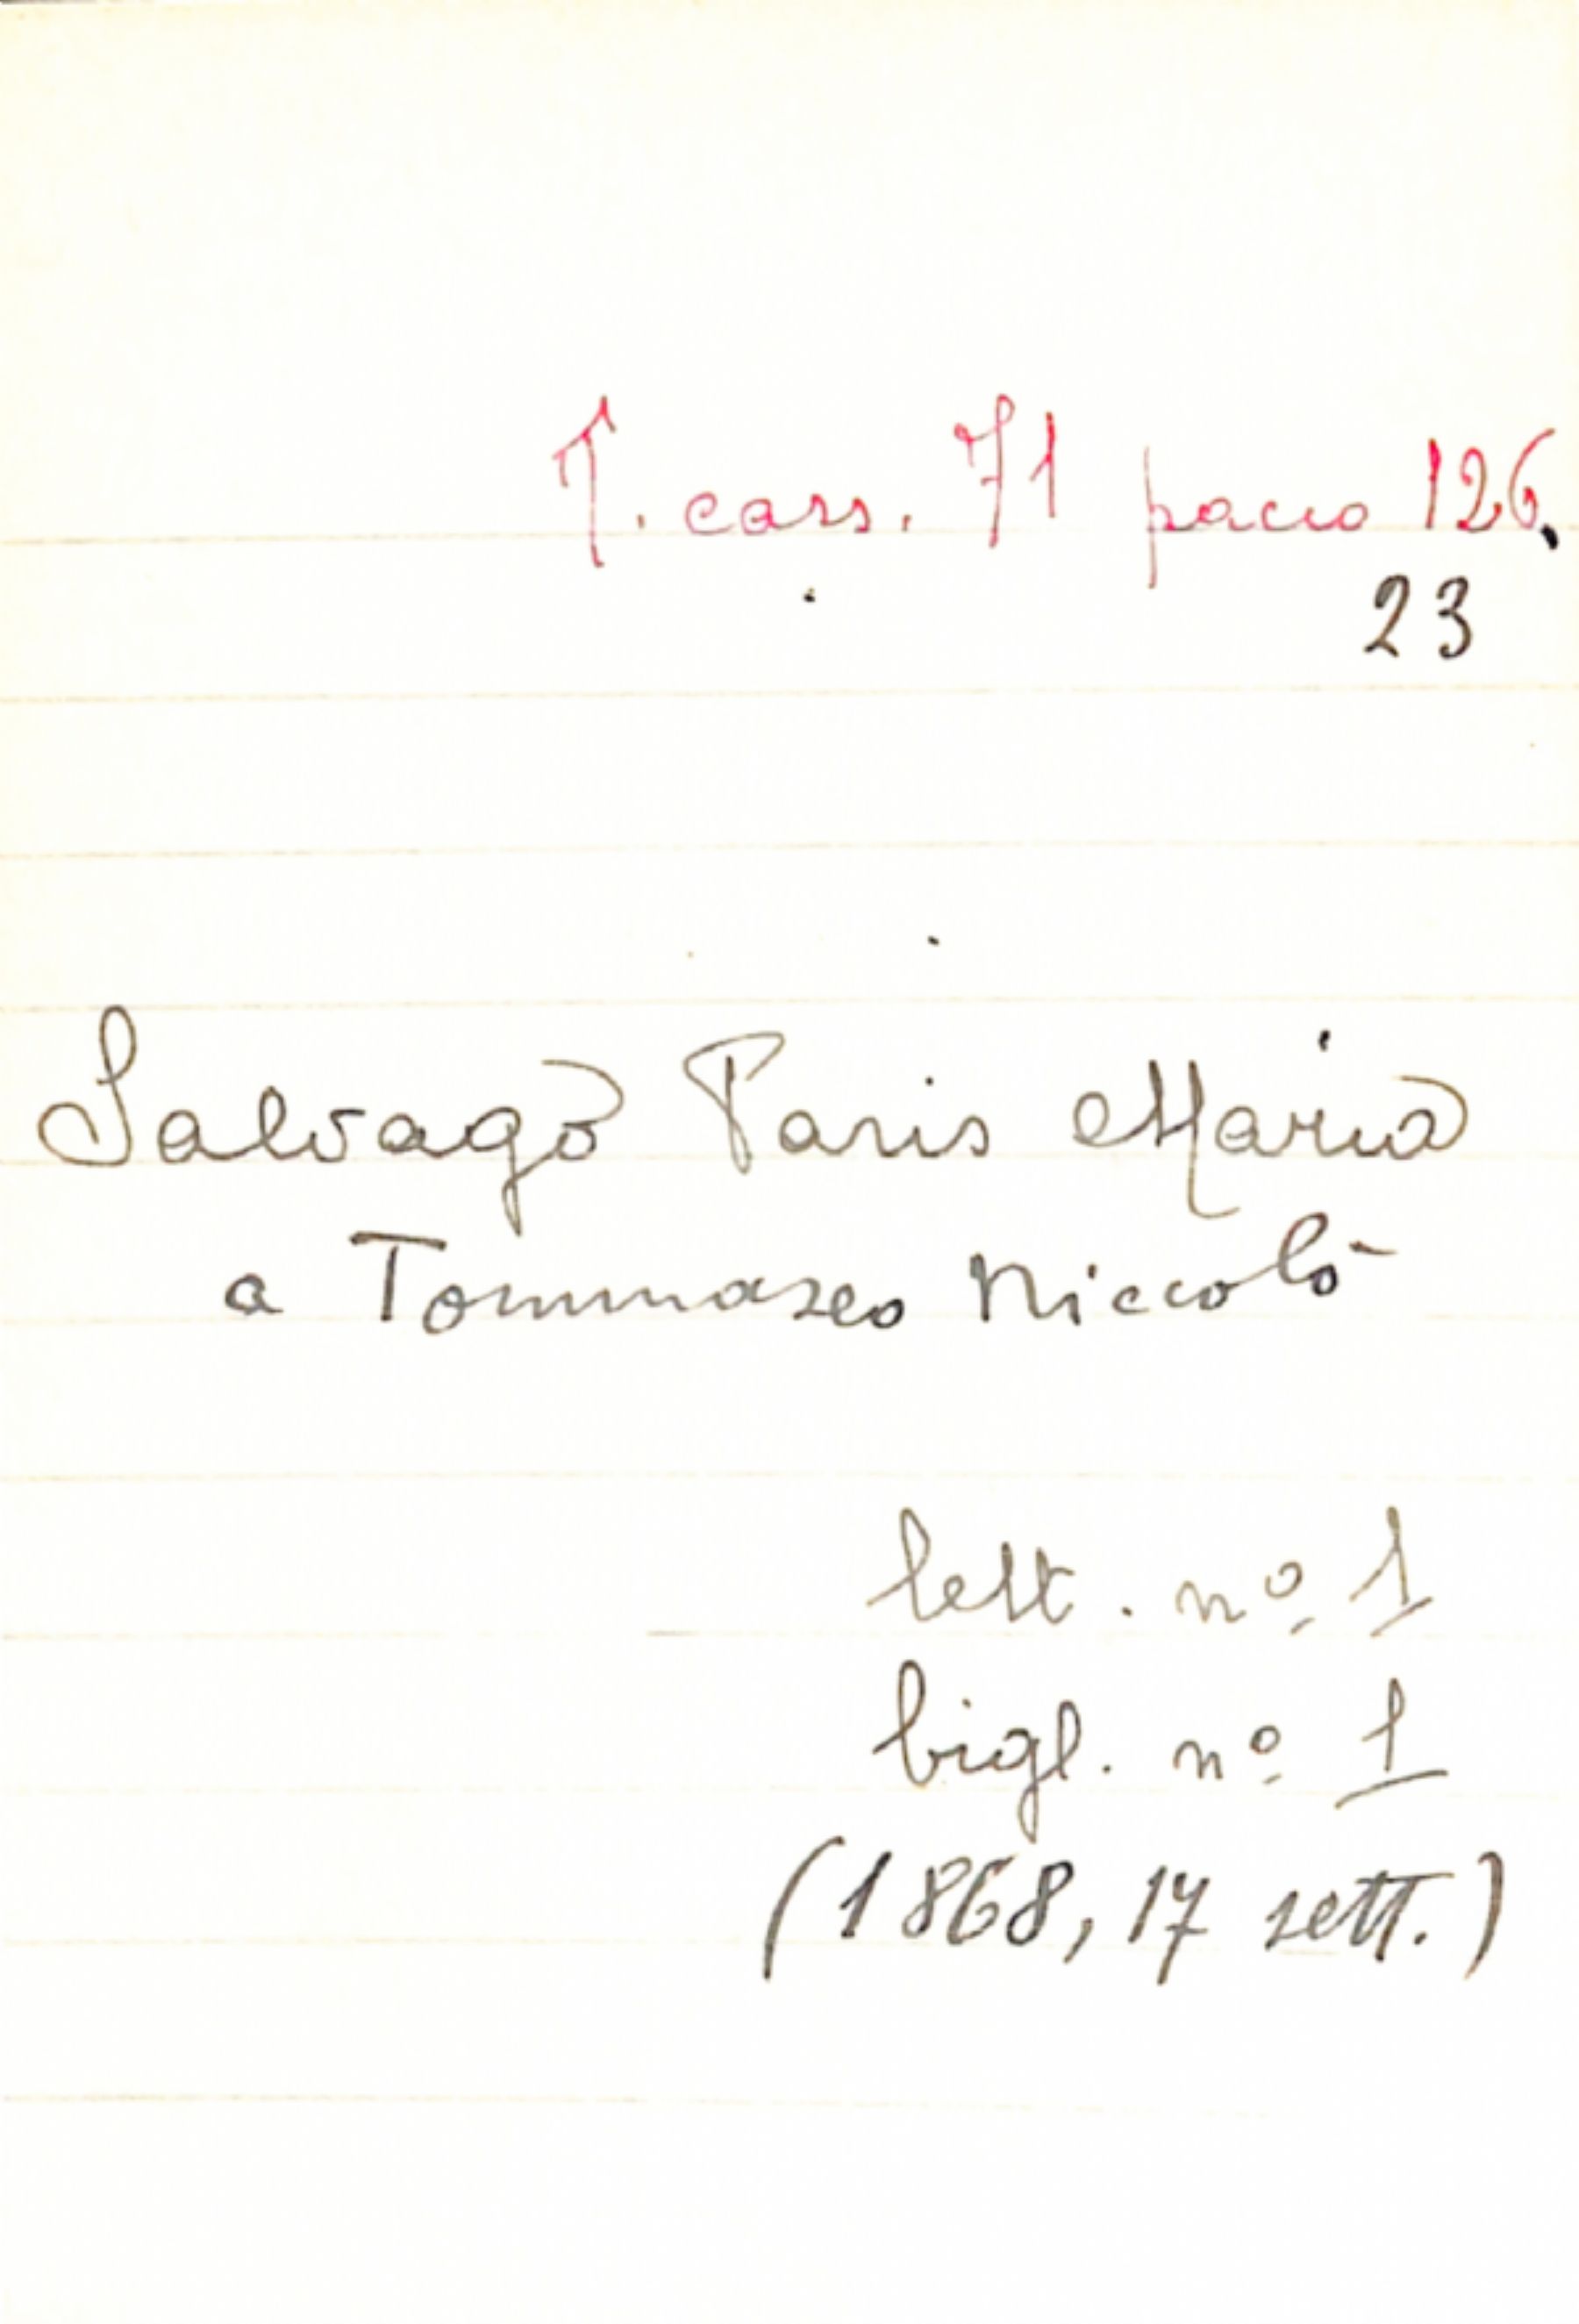 T. cass. 71 pacco 126,
23
Salvago Paris Maria
a Tommaseo Niccolò
lett. nº 1
bigl. nº 1
(1868, 17 sett.)